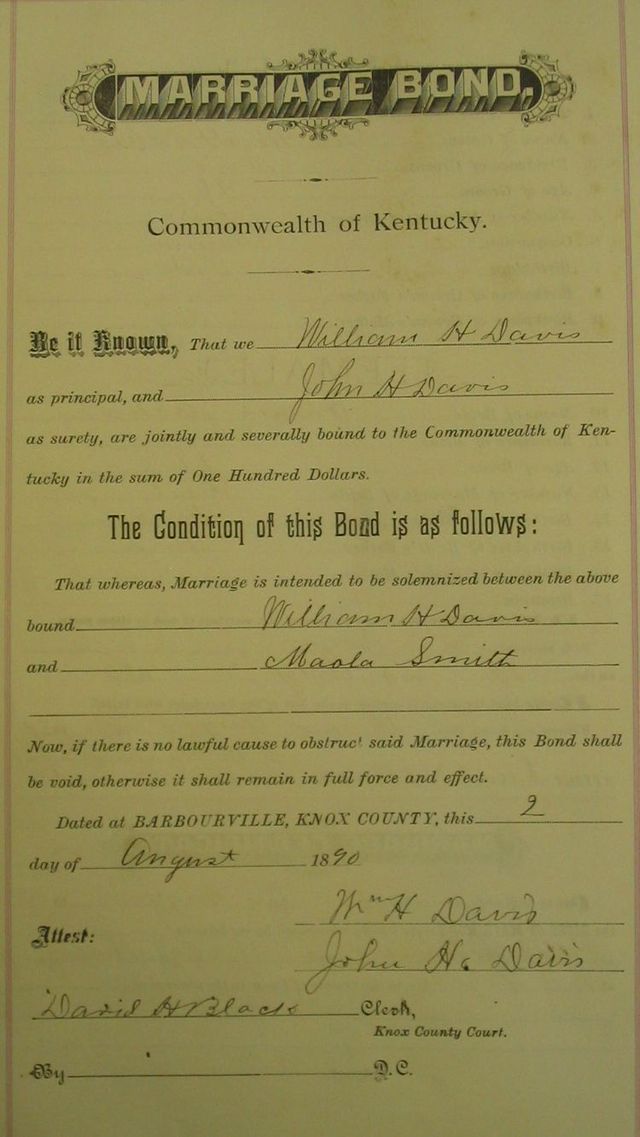 MARRIAGE BOND.
Commonwealth of Kentucky.
Be it Known, That we William H Davis
as principal, and John H Davis
as surety, are jointly and severally bound to the Commonwealth of Ken-
tucky in the sum of One Hundred Dollars.
The Condition of this Bond is as follows:
That whereas, Marriage is intended to be solemnized between the above
bound William H Davis
and Maola Smith
Now, if there is no lawful cause to obstruct said Marriage, this Bond shall
be void, otherwise it shall remain in full force and effect.
Dated at BARBOURVILLE, KNOX COUNTY, this 2
day of August 1890
Wm H Davis
Attest:
John H. Davis
David H Black Clerk,
Knox County Court.
By D.C.